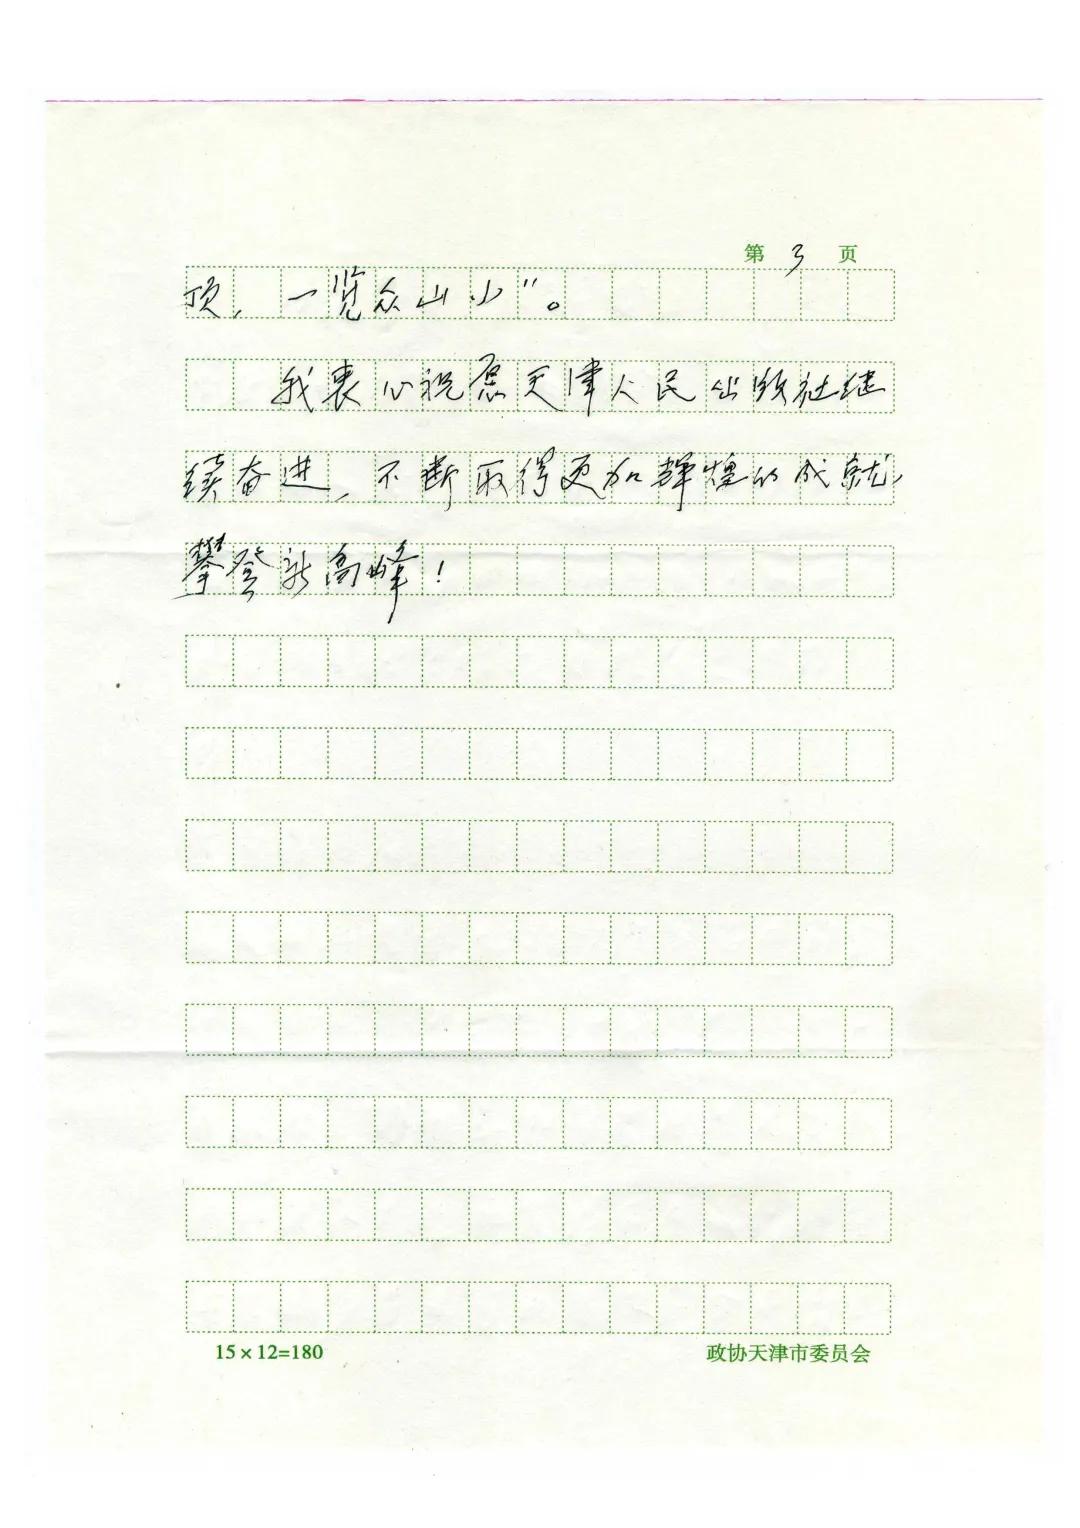 第 3 页
顶，一览众山小"。
我衷心祝愿天津人民出版社继
续奋进，不断取得更加辉煌的成就，
攀登新高峰！
15×12=180 政协天津市委员会